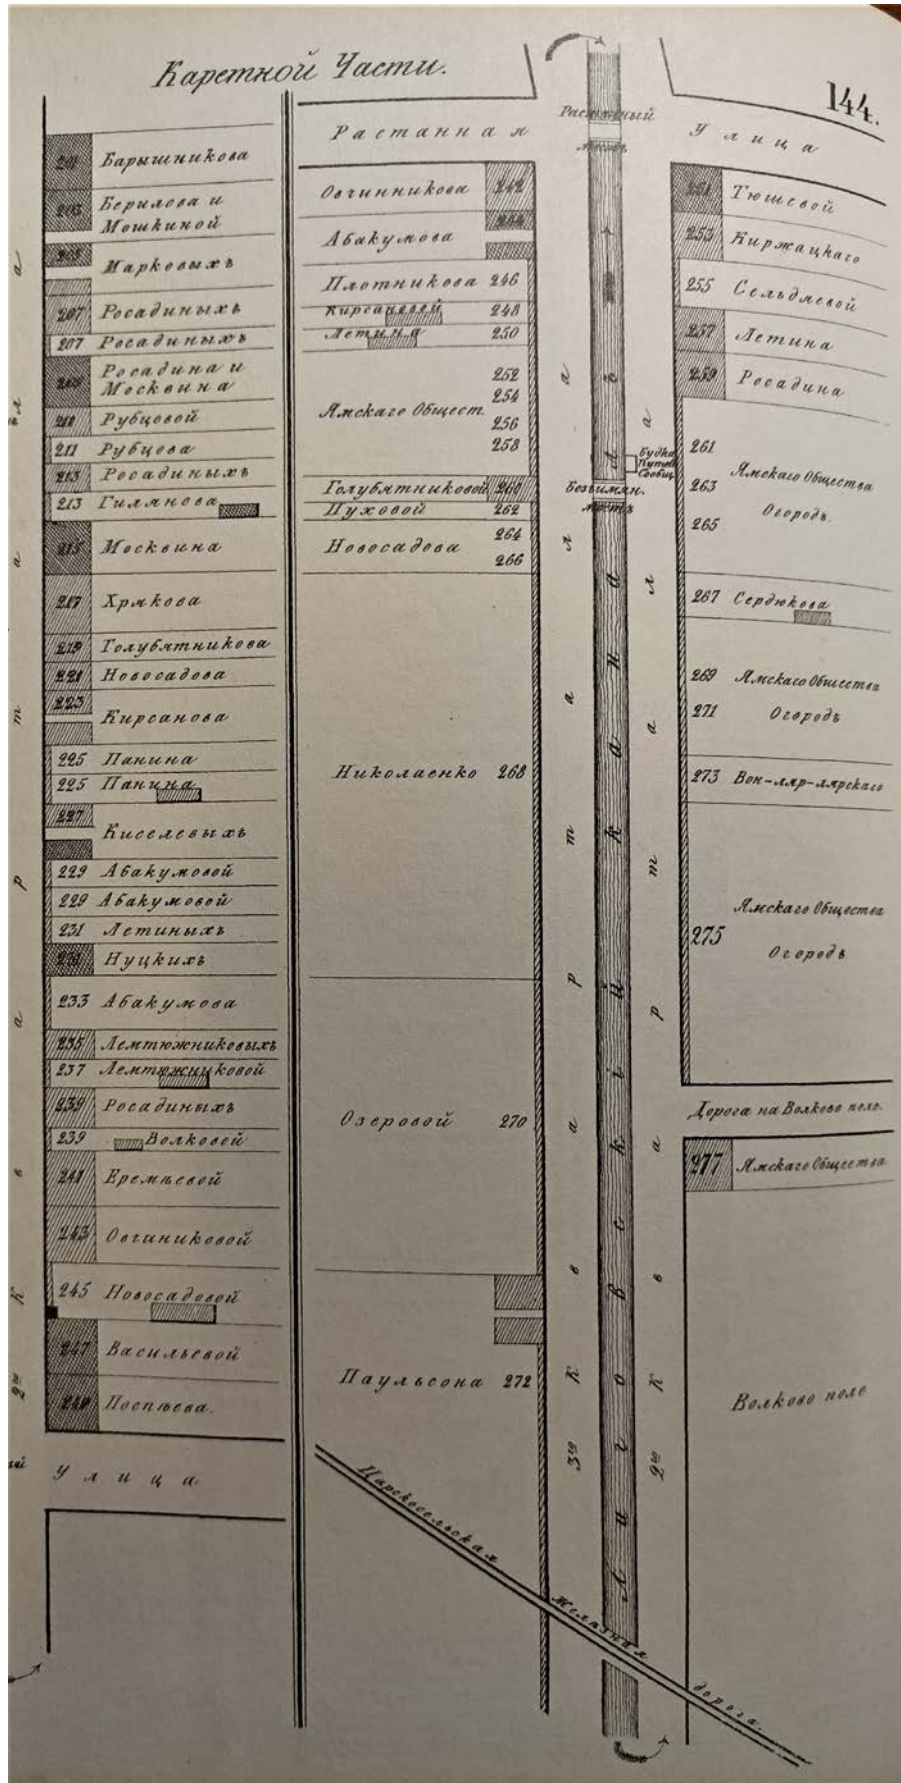 Каретной Части.
144.
Растанная
Улица
201 Барышникова
203 Берилова и
Мошкиной
Марковыхъ
207 Росадиныхъ
207 Росадиныхъ
Росадина и
Москвина
Рубцовой
211 Рубцова
213 Росадиныхъ
213 Гилянова
215 Москвина
217 Хрякова
219 Голубятникова
221 Новосадова
223
Кирсанова
225 Панина
225 Панина
227
Киселевыхъ
229 Абакумовой
229 Абакумовой
231 Летиныхъ
231 Нуцкихъ
233 Абакумова
235 Лемтюжниковыхъ
237 Лемтюжниковой
239 Росадиныхъ
239 Волковей
241 Еремѣевой
243 Овчиниковой
245 Новосадовой
247 Васильевой
249 Поспѣева.
Улица
Овчинникова 242
244
Абакумова
Плотникова 246
Кирсановой 248
Летина 250
252
254
Ямскаго Общест.
256
258
Голубятниковой 260
Пуховой 262
264
Новосадова
266
Николаенко 268
Озеровой 270
Паульсона 272
Царскосельская Желѣзная дорога.
мостъ
Безъимян.
мостъ
Будка
Путей
Сообщ.
Лиговскій каналъ
3го Квартала
2го Квартала
2го Квартала
251 Тюшевой
253 Киржацкаго
255 Сельдяевой
257 Летина
259 Росадина
261
Ямскаго Общества
263
Огородъ.
265
267 Сердюкова
269 Ямскаго Общества
271 Огородъ
273 Вон-ляр-лярскаго
Ямскаго Общества
275
Огородъ
Дорога на Волково поле.
277 Ямскаго Общества
Волково поле